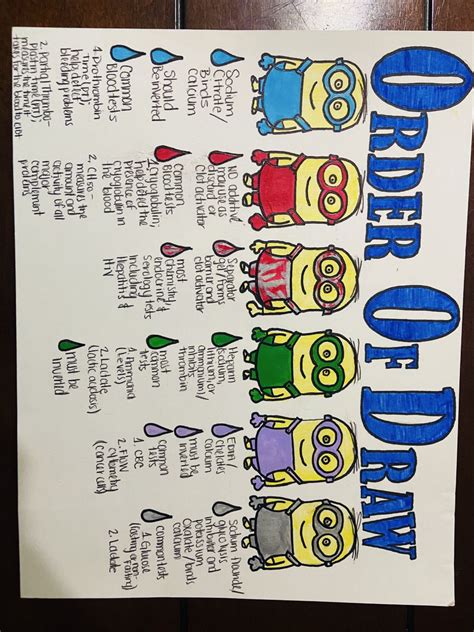 ORDER OF DRAW
Sodium
Citrate/
Binds
calcium
Should
be inverted
Common
Blood tests
1. Prothrombin
Time (PT);
help detect
bleeding problems
2. Partial Thrombo-
plastin Time (PTT);
NO additive
may use as
clot activator
Common
Blood tests
1. Cryoglobulin;
the
presence of
cryoglobulin in
the blood
2. CH50-
measures the
amount and
activity of all
major
complement
proteins
Separator
gel forms
barrier and
clot activator
most
chemistry,
endocrine &
serology tests
including
Hepatitis &
HIV
Heparin
(sodium,
lithium, or
ammonium)/
inhibits
thrombin
most
common
tests
1. Ammonia
(Levels)
2. Lactate
(lactic acidosis)
must be
inverted
EDTA/
chelates
calcium
must be
inverted
common
tests
1. CBC
2. FLOW
cytometry
Sodium flouride/
glycolysis
inhibitor and
potassium
Oxalate/binds
calcium
common tests
1. Glucose
(fasting or non-
fasting)
2. Lactate